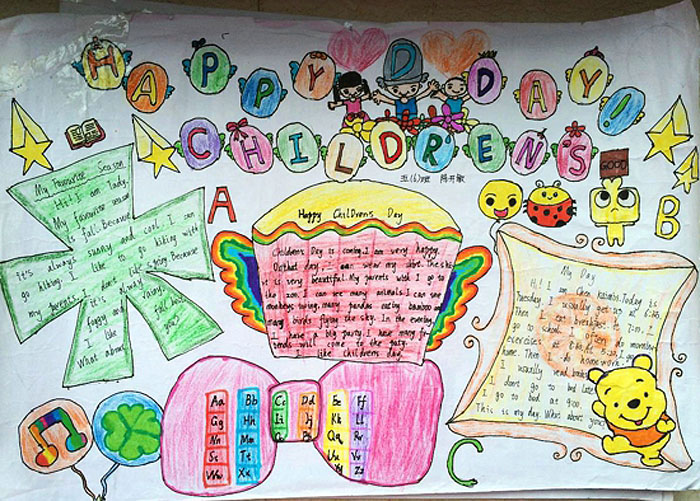 HAPPY DDAY!
CHILDREN'S
五(6)班
GOOD
A
B
C
My Favourite Season
Hi! I am lady.
My favourite season
is fall. Because
it's always sunny and cool. I can
go hiking. I like to go hiking with
my parents.
foggy and
rainy.
like
What about
Happy Childrens Day
Childrens Day is coming. I am very happy.
On that day, wear my The sky
it is very beautiful. My parents wish I go to
the zoo. I can see many animals. I can see
monkeys swing, many pandas eating bamboo an
many birds flying the sky. In the evening,
I have a big party. I have many fr
iends will come to the party.
I like childrens day.
My Day
Hi! I am Chen Today is
Tuesday. I usually get up at 6:45.
Then I eat breakfast at 7:10. I
go to school. I often do morning
exercises at
home. Then I do homework.
I usually read books
I don't go to bed late
I go to bed at 9:00
This is my day. What about you?
Aa Bb Cc Dd Ee Ff
Gg Hh Ii Jj Kk Ll
Mm Nn Qq Rr
Ss Tt
Ww Xx Yy Zz